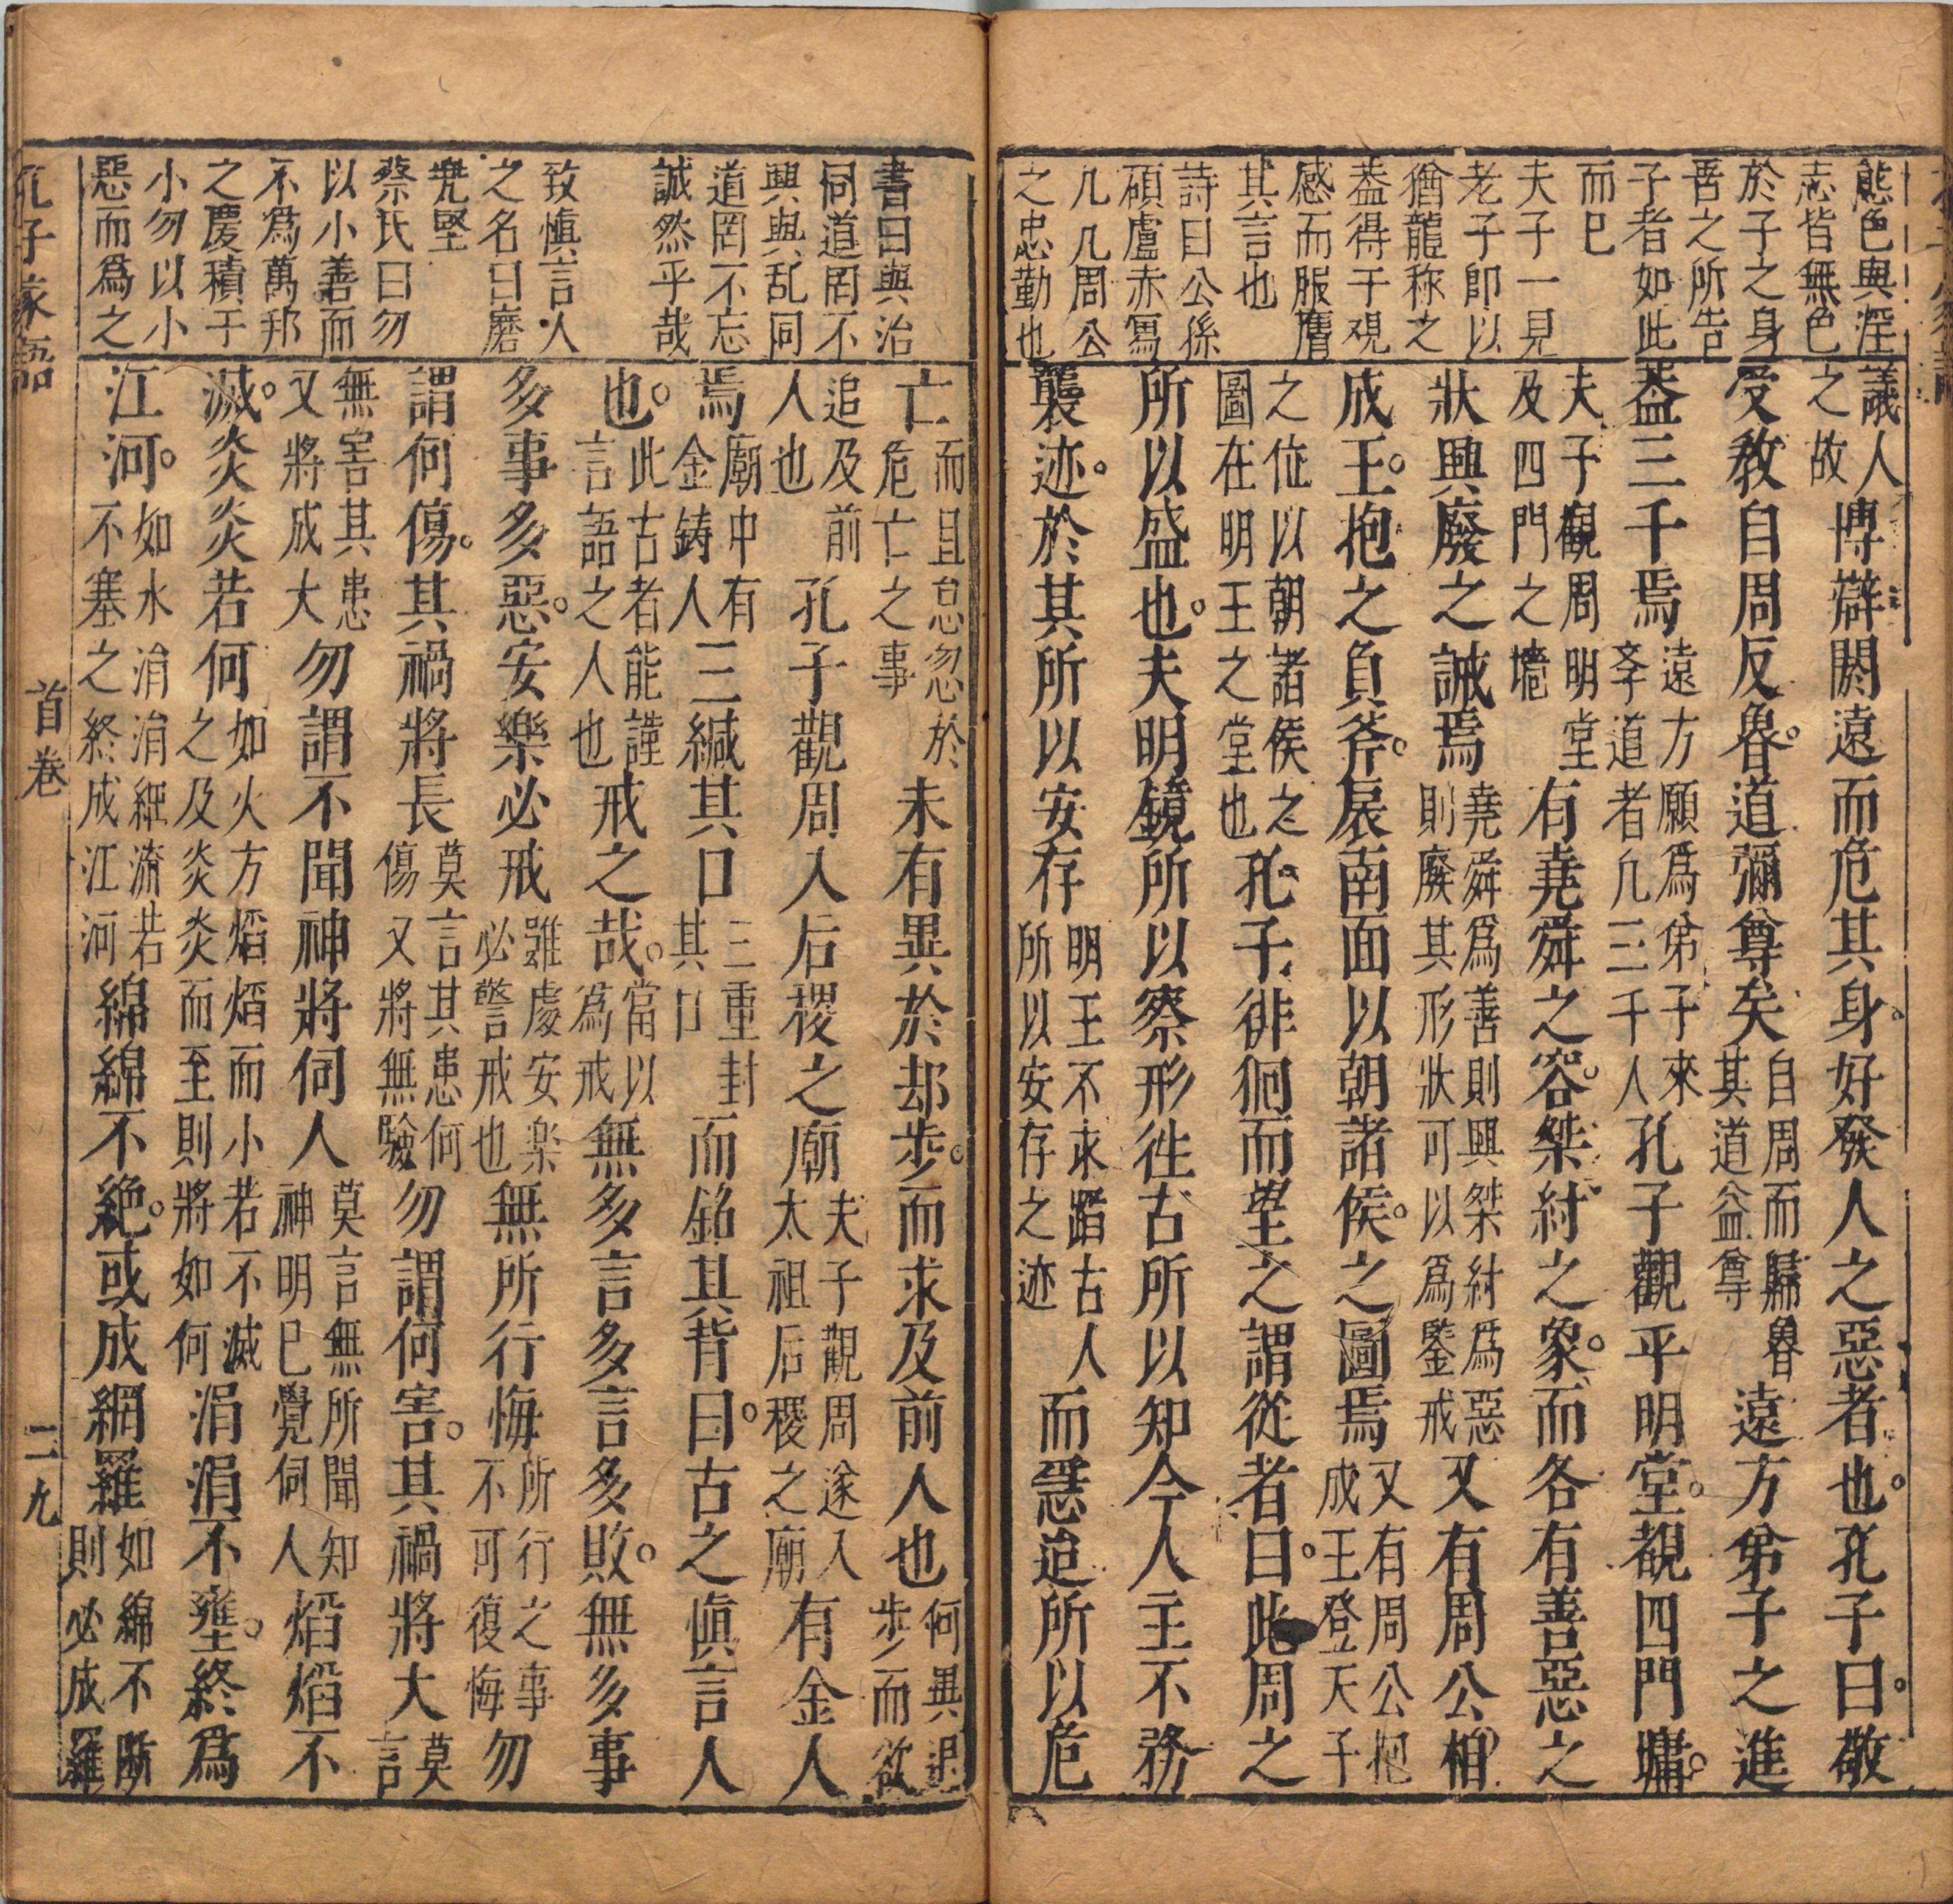 態色與淫
志皆無色
於子之身
吾之所告
子者如此
而已
夫子一見
老子卽以
猶龍稱之
葢得于覌
感而服膺
其言也
詩曰公孫
碩膚赤舃
几几周公
之忠勤也
議人之故博辯閎遠而危其身好發人之惡者也孔子曰敬
受教自周反魯道彌尊矣自周而歸魯其道益尊遠方弟子之進
葢三千焉遠方願爲弟子來李道者凢三千人孔子觀乎明堂覩四門墉
夫子觀周明堂及四門之墻有堯舜之容桀紂之象而各有善惡之
狀興廢之誡焉堯舜爲善則興桀紂爲惡則廢其形狀可以爲鑒戒又有周公相
成王抱之負斧扆南面以朝諸侯之圖焉又有周公抱成王登天子
之位以朝諸侯之圖在明王之堂也孔子徘徊而望之謂從者曰此周之
所以盛也夫明鏡所以察形徃古所以知今人主不務
襲迹於其所以安存明王不求踏古人所以安存之迹而怣迨所以危
書曰與治
同道罔不
興與乱同
道罔不忘
誠然乎哉
致愼言人
之名曰磨
兜堅
蔡氏曰勿
以小善而
不爲萬邦
之慶積于
小勿以小
惡而爲之
亡而且怠忽於危亡之事未有異於却步而求及前人也何異退步而欲
追及前人也孔子觀周入后稷之廟夫子觀周遂入太祖后稷之廟有金人
焉廟中有金鋳人三緘其口三重封其口而銘其背曰古之愼言人
也此古者能謹言語之人也戒之哉當以爲戒無多言多言多敗無多事
多事多惡安樂必戒雖處安楽必警戒也無所行悔所行之事不可復悔勿
謂何傷其禍將長莫言其患何傷又將無驗勿謂何害其禍將大莫言
無害其患又將成大勿謂不聞神將伺人莫言無所聞知神明已覺伺人焰焰不
滅炎炎若何如火方焰焰而小若不滅之及炎炎而至則將如何涓涓不壅終爲
江河如水涓涓細流若不塞之終成江河綿綿不絶或成網羅如綿不斷則必成羅
孔子家語
首卷
二九